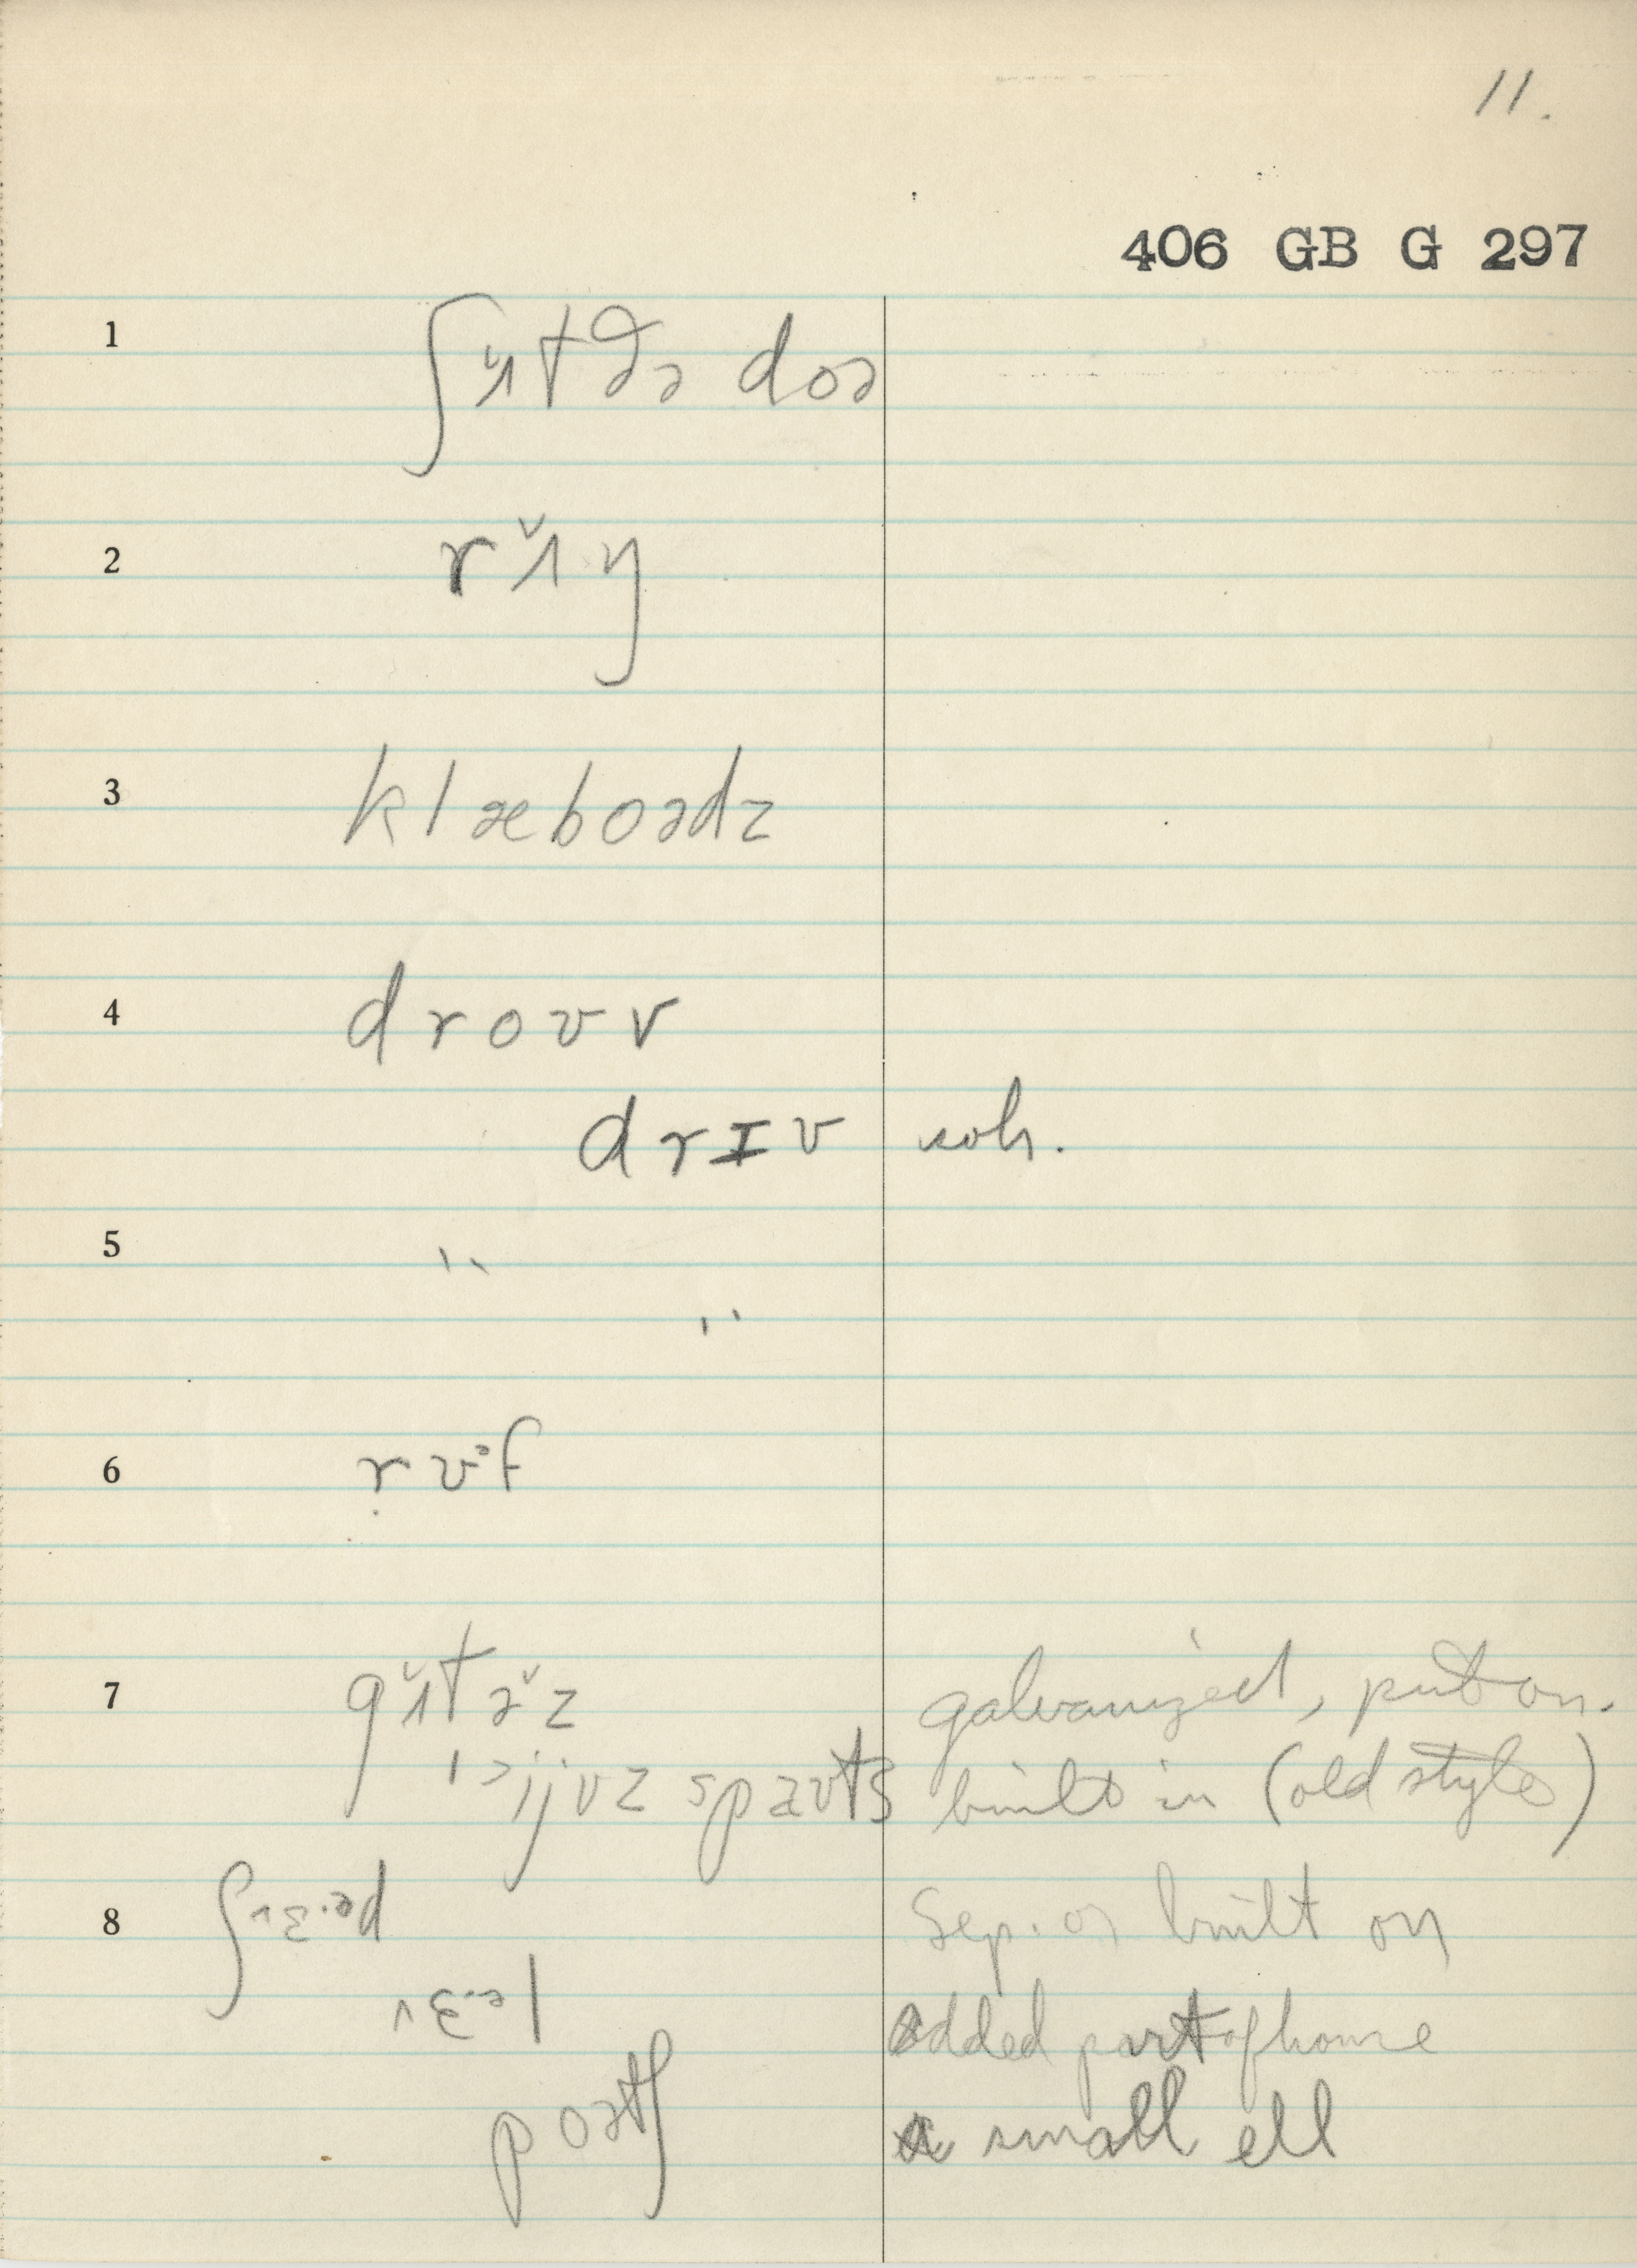 11.
406 GB G 297
1 ʃʌ̆tðə doə
2 rʌ̆ŋ
3 klæboədz
4 droʊv
drɪv sch.
5 " "
6 rʊᵊf
7 gʌ̆tə̆z galvanized, put on.
spaʊts built in (old style)
8 ʃɛᵊd Sep. or built on
ɛᵊl added part of house
poətʃ a small ell